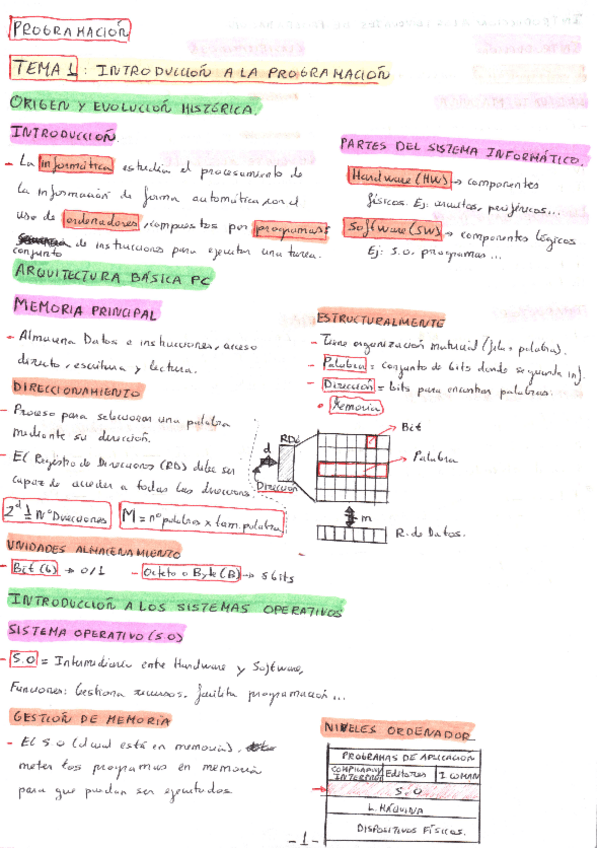 PROGRAMACIÓN
TEMA 1: INTRODUCCIÓN A LA PROGRAMACIÓN
ORIGEN Y EVOLUCIÓN HISTÓRICA.
INTRODUCCIÓN.
- La informática estudia el procesamiento de
la información de forma automática, con el
uso de ordenadores, compuestos por programas:
conjunto de instrucciones para ejecutar una tarea.
PARTES DEL SISTEMA INFORMÁTICO.
Hardware (HW) → componentes
físicos. Ej: circuitos, periféricos...
Software (SW) → componentes lógicos
Ej: S.O. programas...
ARQUITECTURA BÁSICA PC
MEMORIA PRINCIPAL
- Almacena Datos e instrucciones, acceso
directo, escritura y lectura.
DIRECCIONAMIENTO
- Proceso para seleccionar una palabra
mediante su dirección.
- El Registro de Direcciones (RD) debe ser
capaz de acceder a todas las direcciones.
2^d Nº Direcciones
M = nº palabras x tam. palabra
ESTRUCTURALMENTE
- Tiene organización matricial (fila, palabra).
- Palabra = conjunto de bits donde se guarda inf.
- Dirección = bits para encontrar palabras.
• Memoria
Bit
Palabra
d
Dirección
m
R. de Datos.
UNIDADES ALMACENAMIENTO
- Bit (b) → 0/1
- Octeto o Byte (B) → 8 bits
INTRODUCCIÓN A LOS SISTEMAS OPERATIVOS
SISTEMA OPERATIVO (S.O)
- S.O = Intermediario entre Hardware y Software,
Funciones: Gestiona recursos, facilita programación...
GESTIÓN DE MEMORIA
- El S.O (el cual está en memoria),
meter los programas en memoria
para que puedan ser ejecutados
NIVELES ORDENADOR
PROGRAMAS DE APLICACIÓN
Editores
S.O
L. MÁQUINA
DISPOSITIVOS FÍSICOS.
- 1 -